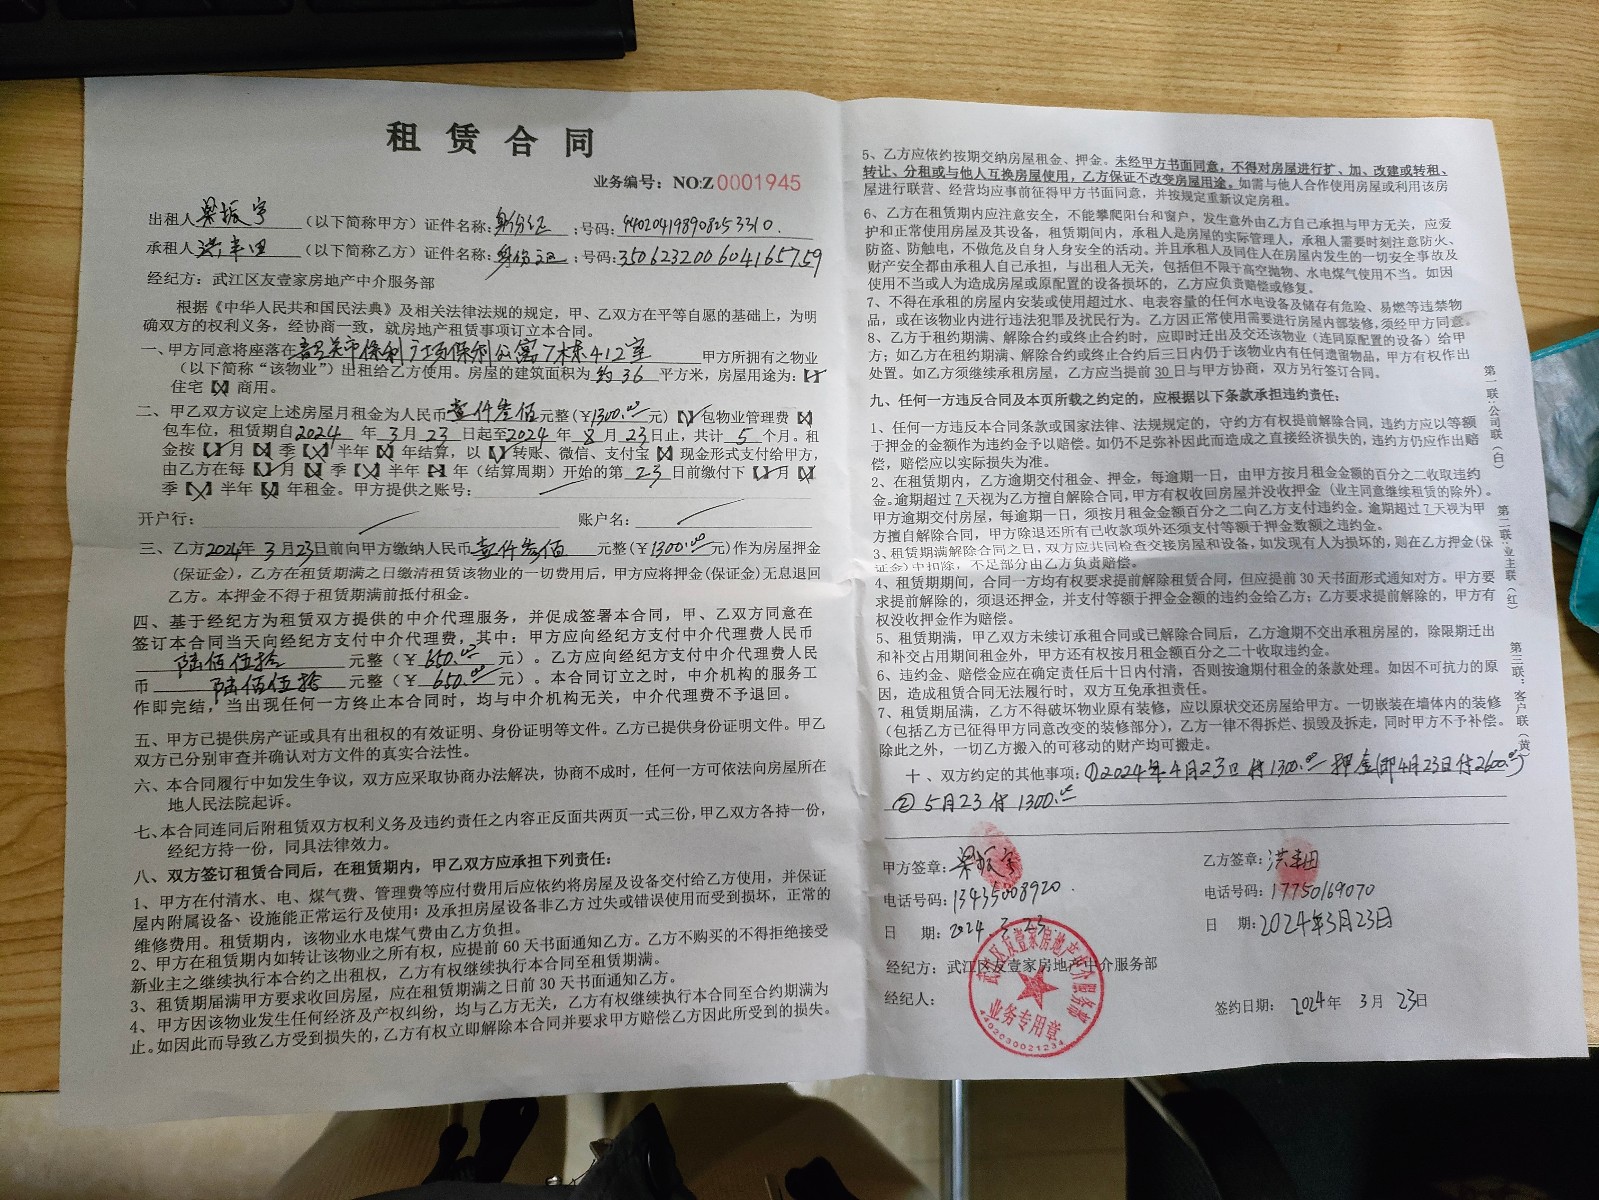 租赁合同
业务编号：NO:Z0001945
出租人梁振宇（以下简称甲方）证件名称：身份证；号码：440204198908253310.
承租人洪丰田（以下简称乙方）证件名称：身份证；号码：350623200604165759
经纪方：武江区友壹家房地产中介服务部
根据《中华人民共和国民法典》及相关法律法规的规定，甲、乙双方在平等自愿的基础上，为明
确双方的权利义务，经协商一致，就房地产租赁事项订立本合同。
一、甲方同意将座落在韶关市保利广场保利公寓7栋412室 甲方所拥有之物业
（以下简称“该物业”）出租给乙方使用。房屋的建筑面积为约36平方米，房屋用途为：【 】
住宅【 】商用。
二、甲乙双方议定上述房屋月租金为人民币壹仟叁佰元整（￥1300.00元）【 】包物业管理费【 】
包车位，租赁期自2024年3月23日起至2024年8月23日止，共计5个月。租
金按【 】月【 】季【 】半年【 】年结算，以【 】转账、微信、支付宝【 】现金形式支付给甲方，
由乙方在每【 】月【 】季【 】半年【 】年（结算周期）开始的第23日前缴付下【 】月【 】
季【 】半年【 】年租金。甲方提供之账号：
开户行： 账户名：
三、乙方2024年3月23日前向甲方缴纳人民币壹仟叁佰元整（￥1300.00元）作为房屋押金
（保证金），乙方在租赁期满之日缴清租赁该物业的一切费用后，甲方应将押金（保证金）无息退回
乙方。本押金不得于租赁期满前抵付租金。
四、基于经纪方为租赁双方提供的中介代理服务，并促成签署本合同，甲、乙双方同意在
签订本合同当天向经纪方支付中介代理费，其中：甲方应向经纪方支付中介代理费人民币
陆佰伍拾元整（￥650.00元）。乙方应向经纪方支付中介代理费人民
币陆佰伍拾元整（￥650.00元）。本合同订立之时，中介机构的服务工
作即完结，当出现任何一方终止本合同时，均与中介机构无关，中介代理费不予退回。
五、甲方已提供房产证或具有出租权的有效证明、身份证明等文件。乙方已提供身份证明文件。甲乙
双方已分别审查并确认对方文件的真实合法性。
六、本合同履行中如发生争议，双方应采取协商办法解决，协商不成时，任何一方可依法向房屋所在
地人民法院起诉。
七、本合同连同后附租赁双方权利义务及违约责任之内容正反面共两页一式三份，甲乙双方各持一份，
经纪方持一份，同具法律效力。
八、双方签订租赁合同后，在租赁期内，甲乙双方应承担下列责任：
1、甲方在付清水、电、煤气费、管理费等应付费用后应依约将房屋及设备交付给乙方使用，并保证
屋内附属设备、设施能正常运行及使用；及承担房屋设备非乙方过失或错误使用而受到损坏，正常的
维修费用。租赁期内，该物业水电煤气费由乙方负担。
2、甲方在租赁期内如转让该物业之所有权，应提前60天书面通知乙方。乙方不购买的不得拒绝接受
新业主之继续执行本合约之出租权，乙方有权继续执行本合同至租赁期满。
3、租赁期届满甲方要求收回房屋，应在租赁期满之日前30天书面通知乙方。
4、甲方因该物业发生任何经济及产权纠纷，均与乙方无关，乙方有权继续执行本合同至合约期满为
止。如因此而导致乙方受到损失的，乙方有权立即解除本合同并要求甲方赔偿乙方因此所受到的损失。
5、乙方应依约按期交纳房屋租金、押金。未经甲方书面同意，不得对房屋进行扩、加、改建或转租、
转让、分租或与他人互换房屋使用，乙方保证不改变房屋用途。如需与他人合作使用房屋或利用该房
屋进行联营、经营均应事前征得甲方书面同意，并按规定重新议定房租。
6、乙方在租赁期内应注意安全，不能攀爬阳台和窗户，发生意外由乙方自己承担与甲方无关，应爱
护和正常使用房屋及其设备，租赁期间内，承租人是房屋的实际管理人，承租人需要时刻注意防火、
防盗、防触电，不做危及自身人身安全的活动。并且承租人及同住人在房屋内发生的一切安全事故及
财产安全都由承租人自己承担，与出租人无关，包括但不限于高空抛物、水电煤气使用不当。如因
使用不当或人为造成房屋或原配置的设备损坏的，乙方应负责赔偿或修复。
7、不得在承租的房屋内安装或使用超过水、电表容量的任何水电设备及储存有危险、易燃等违禁物
品，或在该物业内进行违法犯罪及扰民行为。乙方因正常使用需要进行房屋内部装修，须经甲方同意。
8、乙方于租约期满、解除合约或终止合约时，应即时迁出及交还该物业（连同原配置的设备）给甲
方；如乙方在租约期满、解除合约或终止合约后三日内仍于该物业内有任何遗留物品，甲方有权作出
处置。如乙方须继续承租房屋，乙方应当提前30日与甲方协商，双方另行签订合同。
九、任何一方违反合同及本页所载之约定的，应根据以下条款承担违约责任：
1、任何一方违反本合同条款或国家法律、法规规定的，守约方有权提前解除合同，违约方应以等额
于押金的金额作为违约金予以赔偿。如仍不足弥补因此而造成之直接经济损失的，违约方仍应作出赔
偿，赔偿应以实际损失为准。
2、在租赁期内，乙方逾期交付租金、押金，每逾期一日，由甲方按月租金金额的百分之二收取违约
金。逾期超过7天视为乙方擅自解除合同，甲方有权收回房屋并没收押金（业主同意继续租赁的除外）。
甲方逾期交付房屋，每逾期一日，须按月租金金额百分之二向乙方支付违约金。逾期超过7天视为甲
方擅自解除合同，甲方除退还所有已收款项外还须支付等额于押金数额之违约金。
3、租赁期满解除合同之日，双方应共同检查交接房屋和设备，如发现有人为损坏的，则在乙方押金（保
证金）中扣除，不足部分由乙方负责赔偿。
4、租赁期期间，合同一方均有权要求提前解除租赁合同，但应提前30天书面形式通知对方。甲方要
求提前解除的，须退还押金，并支付等额于押金金额的违约金给乙方；乙方要求提前解除的，甲方有
权没收押金作为赔偿。
5、租赁期满，甲乙双方未续订承租合同或已解除合同后，乙方逾期不交出承租房屋的，除限期迁出
和补交占用期间租金外，甲方还有权按月租金额百分之二十收取违约金。
6、违约金、赔偿金应在确定责任后十日内付清，否则按逾期付租金的条款处理。如因不可抗力的原
因，造成租赁合同无法履行时，双方互免承担责任。
7、租赁期届满，乙方不得破坏物业原有装修，应以原状交还房屋给甲方。一切嵌装在墙体内的装修
（包括乙方已征得甲方同意改变的装修部分），乙方一律不得拆烂、损毁及拆走，同时甲方不予补偿。
除此之外，一切乙方搬入的可移动的财产均可搬走。
十、双方约定的其他事项：①2024年4月23日付1300.00押金(即4月23日付2600.00)
②5月23付1300.00
甲方签章：梁振宇 乙方签章：洪丰田
电话号码：13435008920. 电话号码：17750169070
日 期：2024.3.23 日 期：2024年3月23日
经纪方：武江区友壹家房地产中介服务部
经纪人： 签约日期：2024年3月23日
武江区友壹家房地产中介服务部
业务专用章
4402030021234
第一联：公司联（白）
第二联：业主联（红）
第三联：客户联（黄）